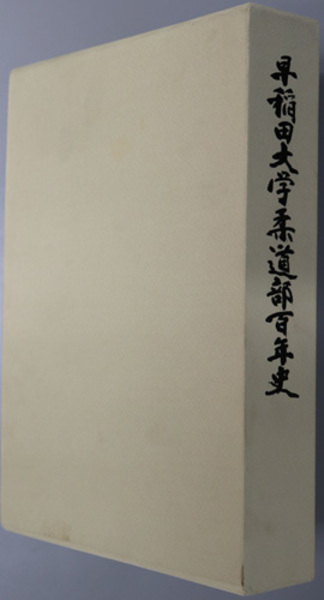 早稲田大学柔道部百年史